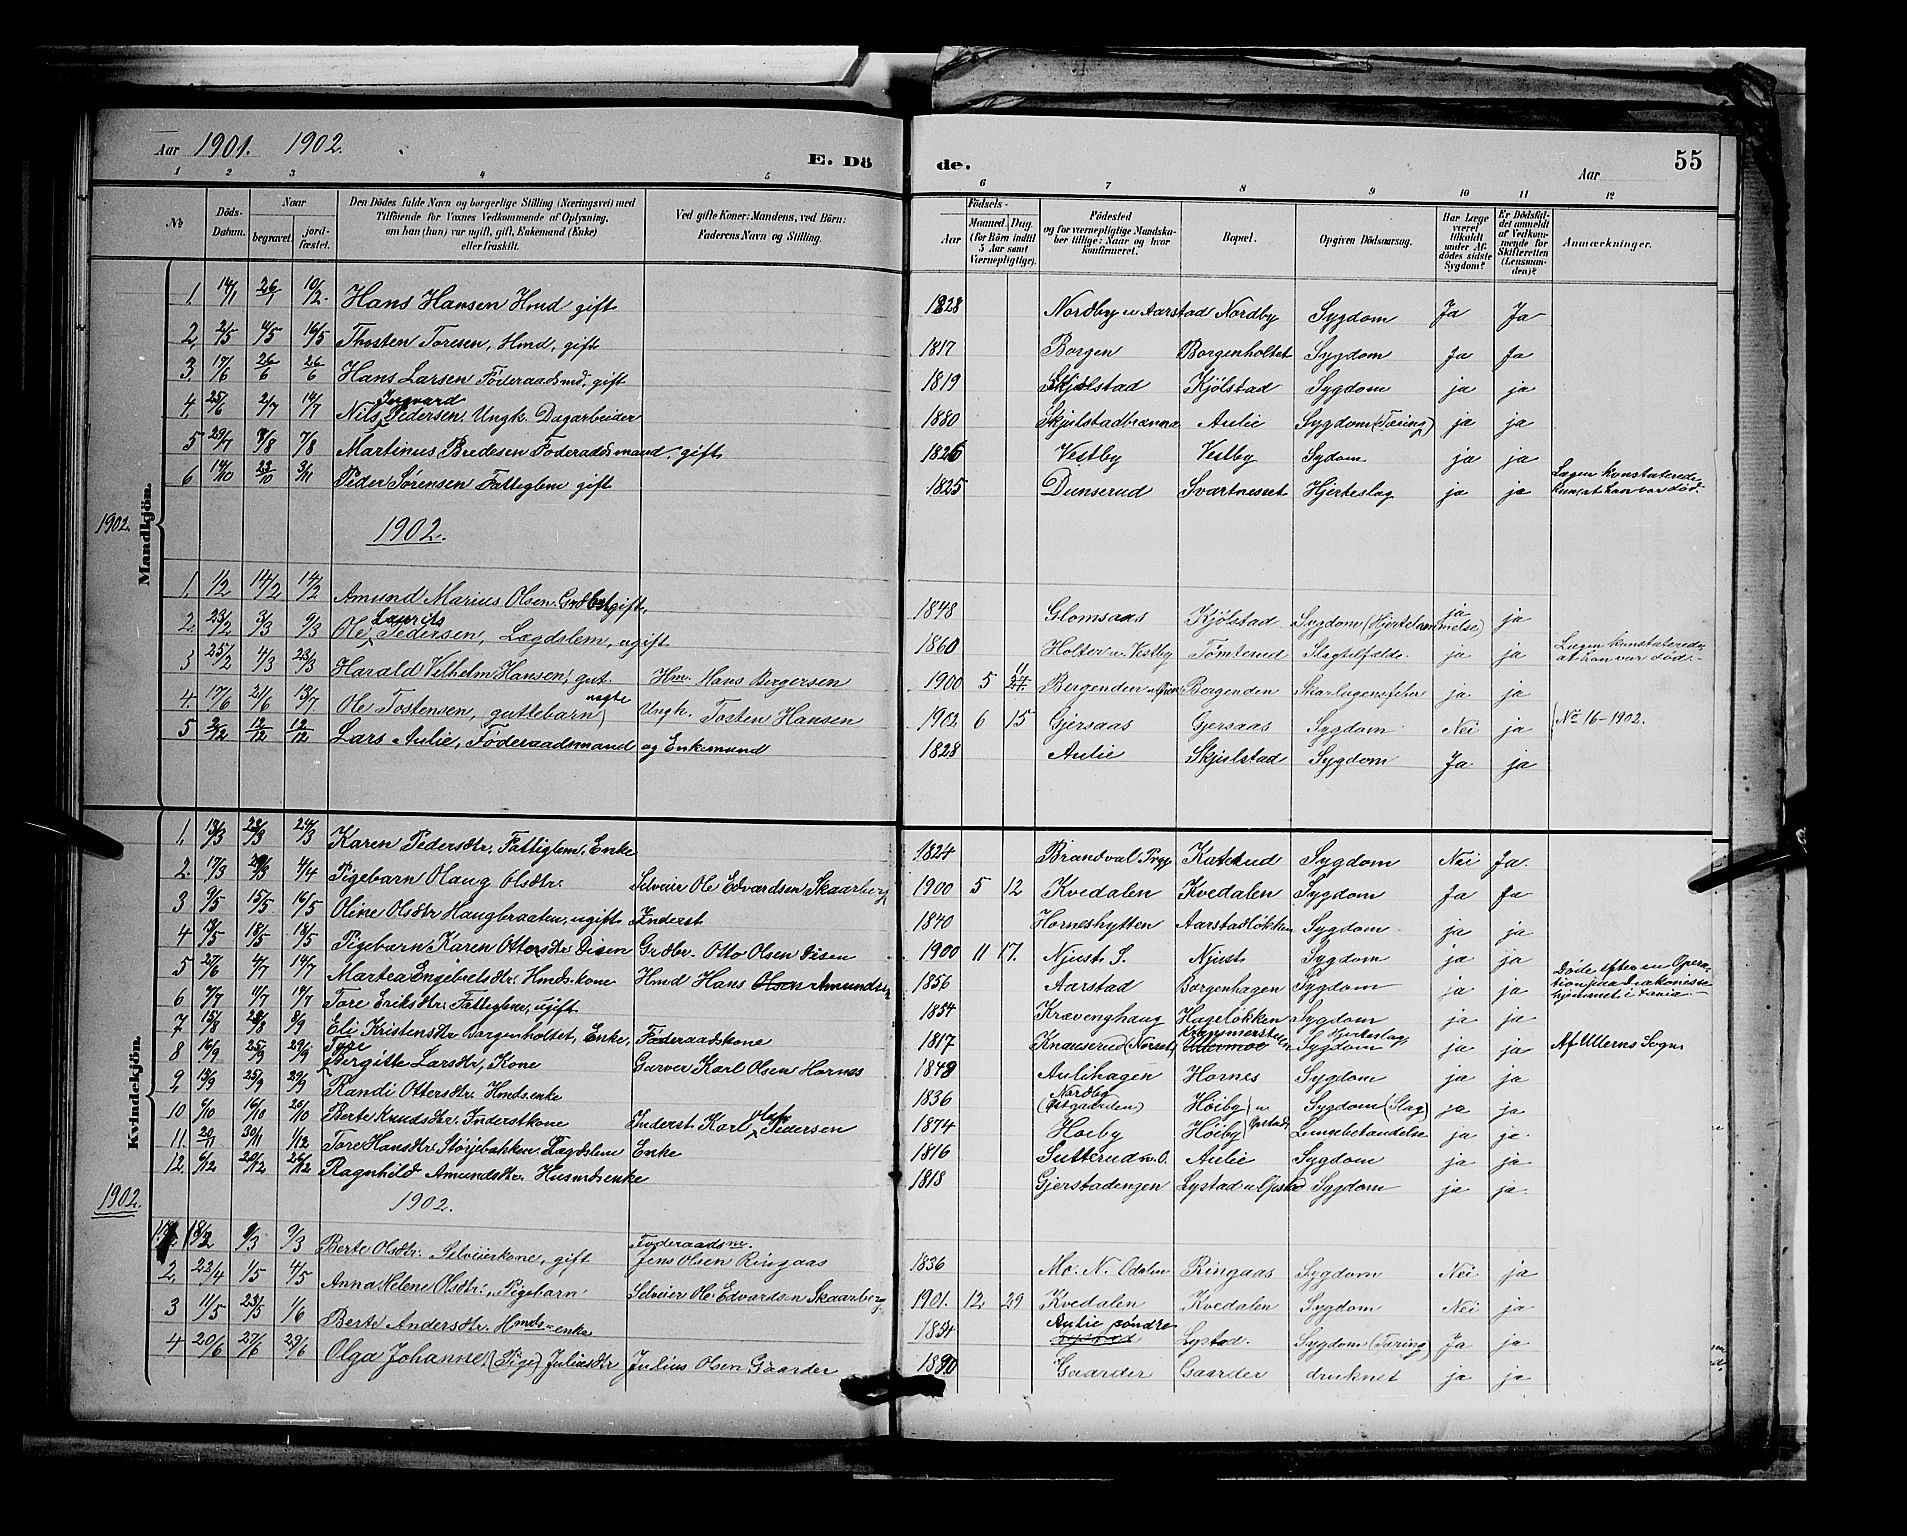 Aar 1901. 1902.
E. Dö
de.
Aar
55
1 2 3 4 5
6 7 8 9 10 11 12
No
Döds-Datum.
Naar
begravet.
jord-fæstet.
Den Dödes fulde Navn og borgerlige Stilling (Næringsvei) med
Tilföiende for Voxnes Vedkommende af Oplysning,
om han (hun) var ugift, gift, Enkemand (Enke)
eller fraskilt.
Ved gifte Koner: Mandens, ved Börn:
Faderens Navn og Stilling.
Födsels-
Aar
Maaned. Dag.
(for Börn indtil
5 Aar samt
Værnepligtige).
Födested
og for værnepligtige Mandska-
ber tillige: Naar og hvor
konfirmeret.
Bopæl.
Opgiven Dödsaarsag.
Har Læge
været
tilkaldt
under Af-
dödes sidste
Sygdom?
Er Dödsfal-
det anmeldt
af Vedkom-
mende for
Skifteretten
(Lensman-
den)?
Anmærkninger.
Mandkjön.
1. 14/1 26/1 10/2. Hans Hansen Hmd gift 1828 Nordby u Aarstad Nordby Sygdom Ja Ja
2. 2/5 4/5 16/5 Thosten Toresen, Hmd, gift 1817 Borgen Borgenholtet Sygdom Ja Ja
3. 17/6 26/6 26/6 Hans Larsen Föderaadsmd. gift 1819 Skjølstad Kjölstad Sygdom ja ja
4 25/6 2/7 14/7 Nils Ingvard Pedersen Ungk. Dagarbeider 1880 Skjølstadbrænna Aulie Sygdom (Tæring) ja ja
5 29/7 4/8 7/8 Martinus Bredesen Föderaadsmand, gift 1826 Vestby Vestby Sydom ja ja
6 14/10 22/10 3/11 Peder Sørensen Fattiglem gift 1825 Dunserud Svartnesset Hjerteslag ja ja Lægen konstaterede
kun, at han var død.
1902.
1902.
1. 1/2 14/2 14/2 Amund Marius Olsen. Grdbr, gift. 1848 Glomsaas Kjölstad Sygdom (Hjertelammelse) ja ja
2. 23/2 3/3 9/3 Ole Laurits Pedersen, Lægdslem, ugift 1860 Holter u. Vestby Tömterud Slagtilfælde. ja ja Lægen konstaterede
at han var död.
3 25/2 4/3 23/3 Harald Vilhelm Hansen, gut. Hm. Hans Bergersen 1900 5 11 Bergenden Bergenden Skarlagensfeber ja ja
4. 17/6 21/6 13/7 Ole Tostensen, guttebarn uegte Ungk. Tosten Hansen 1902 6 15 Gjersaas Gjersaas Sygdom Nei ja No 16-1902.
5 2/12 12/12 12/12 Lars Aulie, Föderaadsmand og Enkemand 1828 Aulie Skjølstad Sygdom Ja ja
Kvindekjön.
1. 13/3 23/3 24/3 Karen Pedersdtr. Fattiglem. Enke 1824 Brandval Prgj Katerud Sygdom Nei Ja.
2. 17/3 29/3 4/4 Pigebarn Olaug Olsdtr. Selveier Ole Edvardsen Skaarberg 1900 5 12 Kvedalen Kvedalen Sygdom Ja Ja
3 9/5 15/5 16/5 Oline Olsdtr Haugbraaten, ugift Inderst 1840 Horneshytten Aarstadløkken Sygdom ja ja
4 13/5 18/5 18/5 Pigebarn Karen Ottersdtr Disen Grdbr. Otto Olsen Disen 1900 11 17. Njust S. Njust Sygdom ja ja
5 27/6 4/7 14/7 Martea Engebretsdtr, Hmdskone Hmd Hans Olsen Amundsen 1856 Aarstad Borgenhagen Sygdom ja ja Döde efter en Opera-
tion paa Diakonisse-
hjemmet i Kania
6 7/7 11/7 14/7 Tore Eriksdtr. Fattiglem, ugift 1854 Krævenghaug Hagelökken Sygdom ja ja
7 15/8 23/8 8/9 Eli Kristensdtr Borgenholtet, Enke, Föderaadskone 1817 Knauserud (Norset) Sygdom Hjerteslag ja ja Af Ullerns Sogn
8 16/9 25/9 29/9 Tore Birgitte Larsdtr, Kone Garver Karl Olsen Hornes 1848 Aulihagen Hornes Sygdom ja ja
9 18/9 25/9 29/9 Randi Ottersdtr. Hmdsenke 1836 Nordby (Østgaarden) Høiby u Opstad Sygdom (Slag) ja ja
10 6/10 16/10 20/10 Berte Knudsdtr. Inderstkone Inderst Karl Olaf Pedersen 1874 Høiby Høiby Lungebetændelse ja ja.
11. 20/11 30/11 1/12 Tore Hansdtr. Störjebakken. Lægdslem Enke 1816 Sutterud v. O. Aulie Sygdom ja ja
12. 6/12 20/12 26/12 Ragnhild Amundsdtr. Husmdsenke 1818 Gjerstadengen Lystad u Opstad Sygdom ja ja.
1902.
1902.
1. 18/2 9/3 9/3 Berte Olsdtr. Selveierkone, gift Föderaadsm. Jens Olsen Ringaas 1836 Mo. N. Odalen Ringaas Sygdom Nei ja
2. 23/4 1/5 4/5 Anna Helene Olsdtr, Pigebarn Selveier Ole Edvardsen Skaarberg 1901. 12. 29 Kvedalen Kvedalen Sygdom Nei ja
3 11/5 23/5 1/6 Berte Andersdtr. Hmds-enke 1834 Aulie söndre Lystad. Sygdom (Tæring) Ja ja
4 20/6 27/6 29/6 Olga Johanne (Pige) Juliusdtr Julius Olsen Gaarder 1890 Gaarder Gaarder druknet ja ja